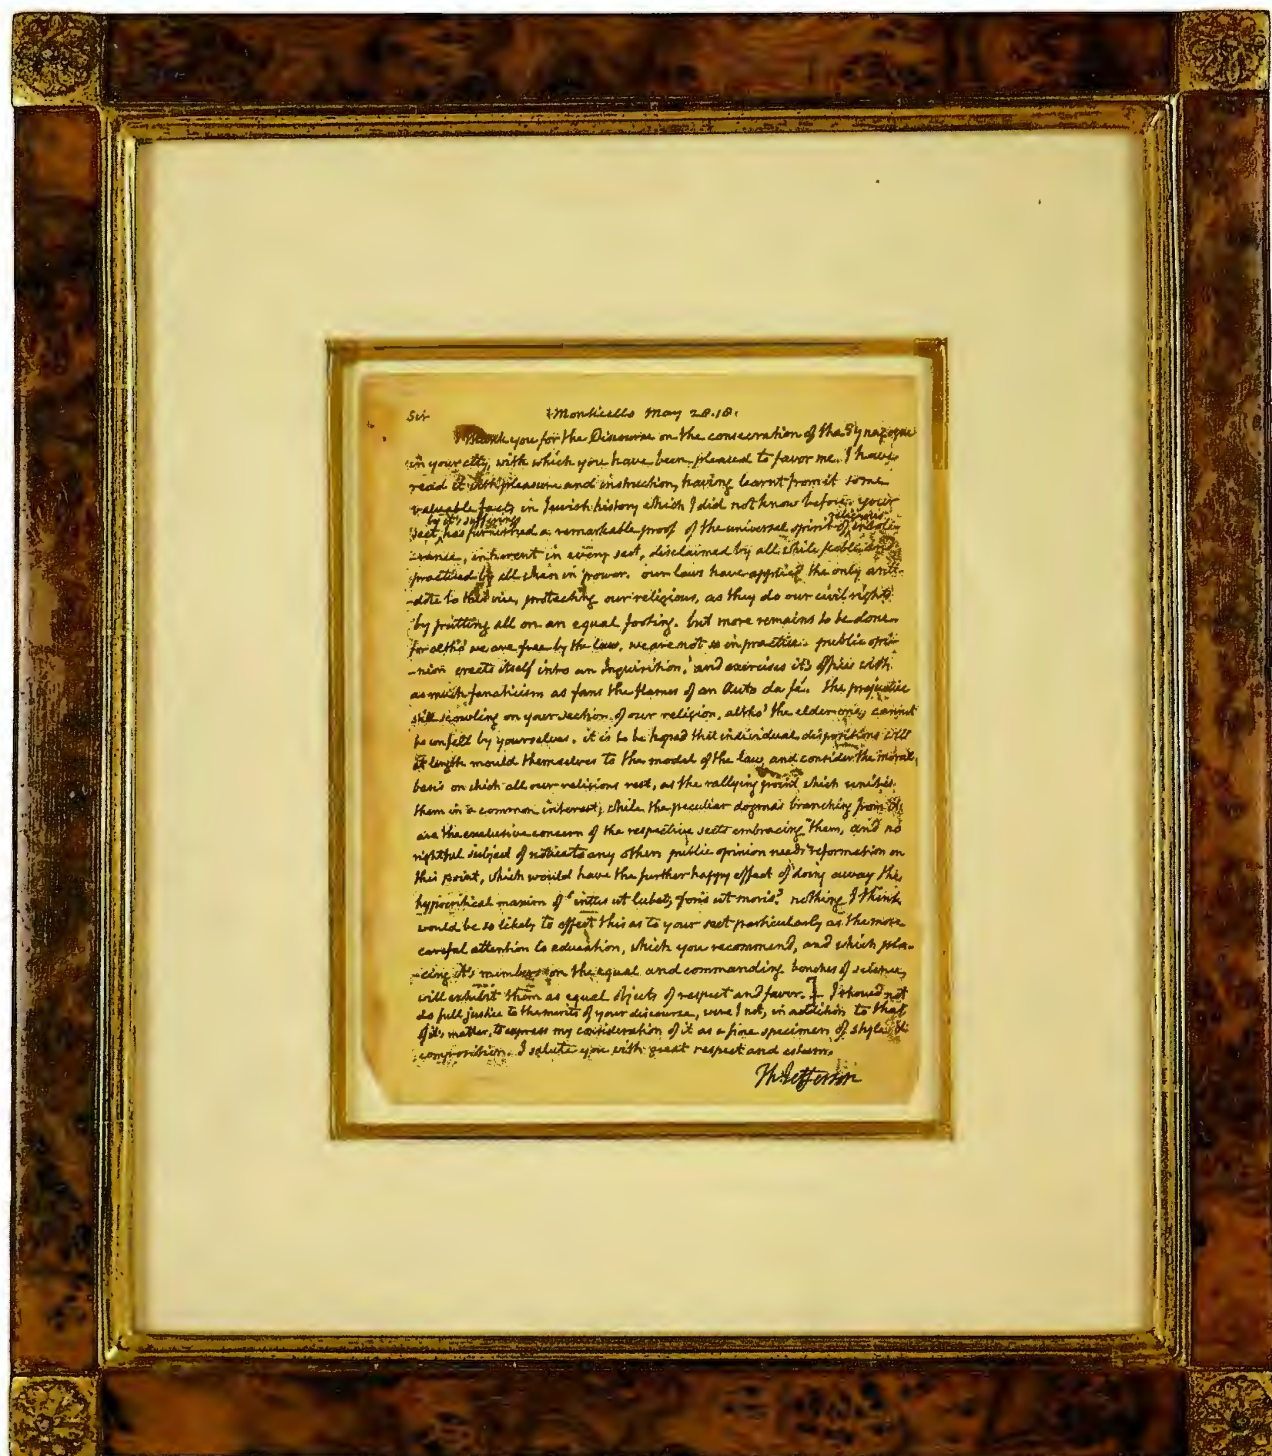 Sir Monticello May 28. 18.
I thank you for the Discourse on the consecration of the Synagogue
in your city, with which you have been pleased to favor me. I have
read it with pleasure and instruction, having learnt from it some
valuable facts in Jewish history which I did not know before. your
by it's sufferings religious
sect has furnished a remarkable proof of the universal spirit of intole-
-rance, inherent in every sect, disclaimed by all while feeble, and
practised by all when in power. our laws have applied the only anti-
-dote to this vice, protecting our religious, as they do our civil rights
by putting all on an equal footing. but more remains to be done.
for altho' we are free by the law, we are not so in practice. public opi-
-nion erects itself into an Inquisition, and exercises it's office with
as much fanaticism as fans the flames of an Auto da fé. the prejudice
still scowling on your section of our religion, altho' the elder one, cannot
be unfelt by yourselves. it is to be hoped that individual dispositions will
at length mould themselves to the model of the law, and consider the moral
basis on which all our religions rest, as the rallying point which unites
them in a common interest; while the peculiar dogmas branching from it
are the exclusive concern of the respective sects embracing them, and no
rightful subject of notice to any other. public opinion needs reformation on
this point, which would have the further happy effect of doing away the
hypocritical maxim of 'intus ut lubet, foris ut moris'. nothing I think
would be so likely to effect this as to your sect particularly as the more
careful attention to education, which you recommend, and which pla-
-cing it's members on the equal and commanding benches of science,
will exhibit them as equal objects of respect and favor.] I should not
do full justice to the merits of your discourse, were I not, in addition to that
of it's matter, to express my consideration of it as a fine specimen of style &
composition. I salute you with great respect and esteem.
Th: Jefferson